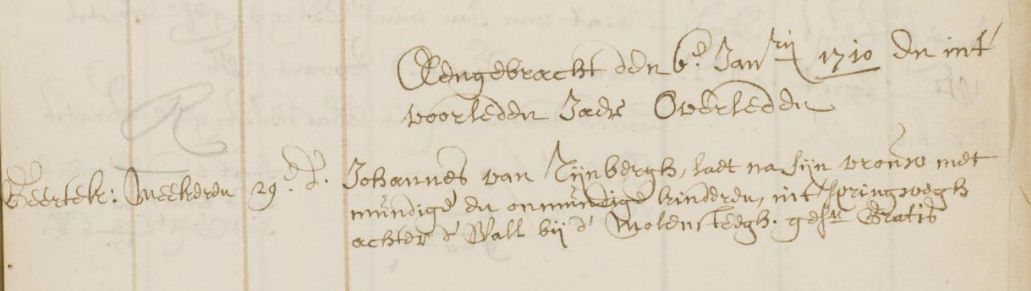 Aengebracht den 6e. Janrij 1710 en int
voorleden Jaer Overleden
Geertek: Meekeren 29 d:o Johannes van Rijnbergh, laet na sijn vrouw met
mundige en onmundige kinderen, int Springwegh
achter d' Wall bij d' Molensteegh. ges: Gratis